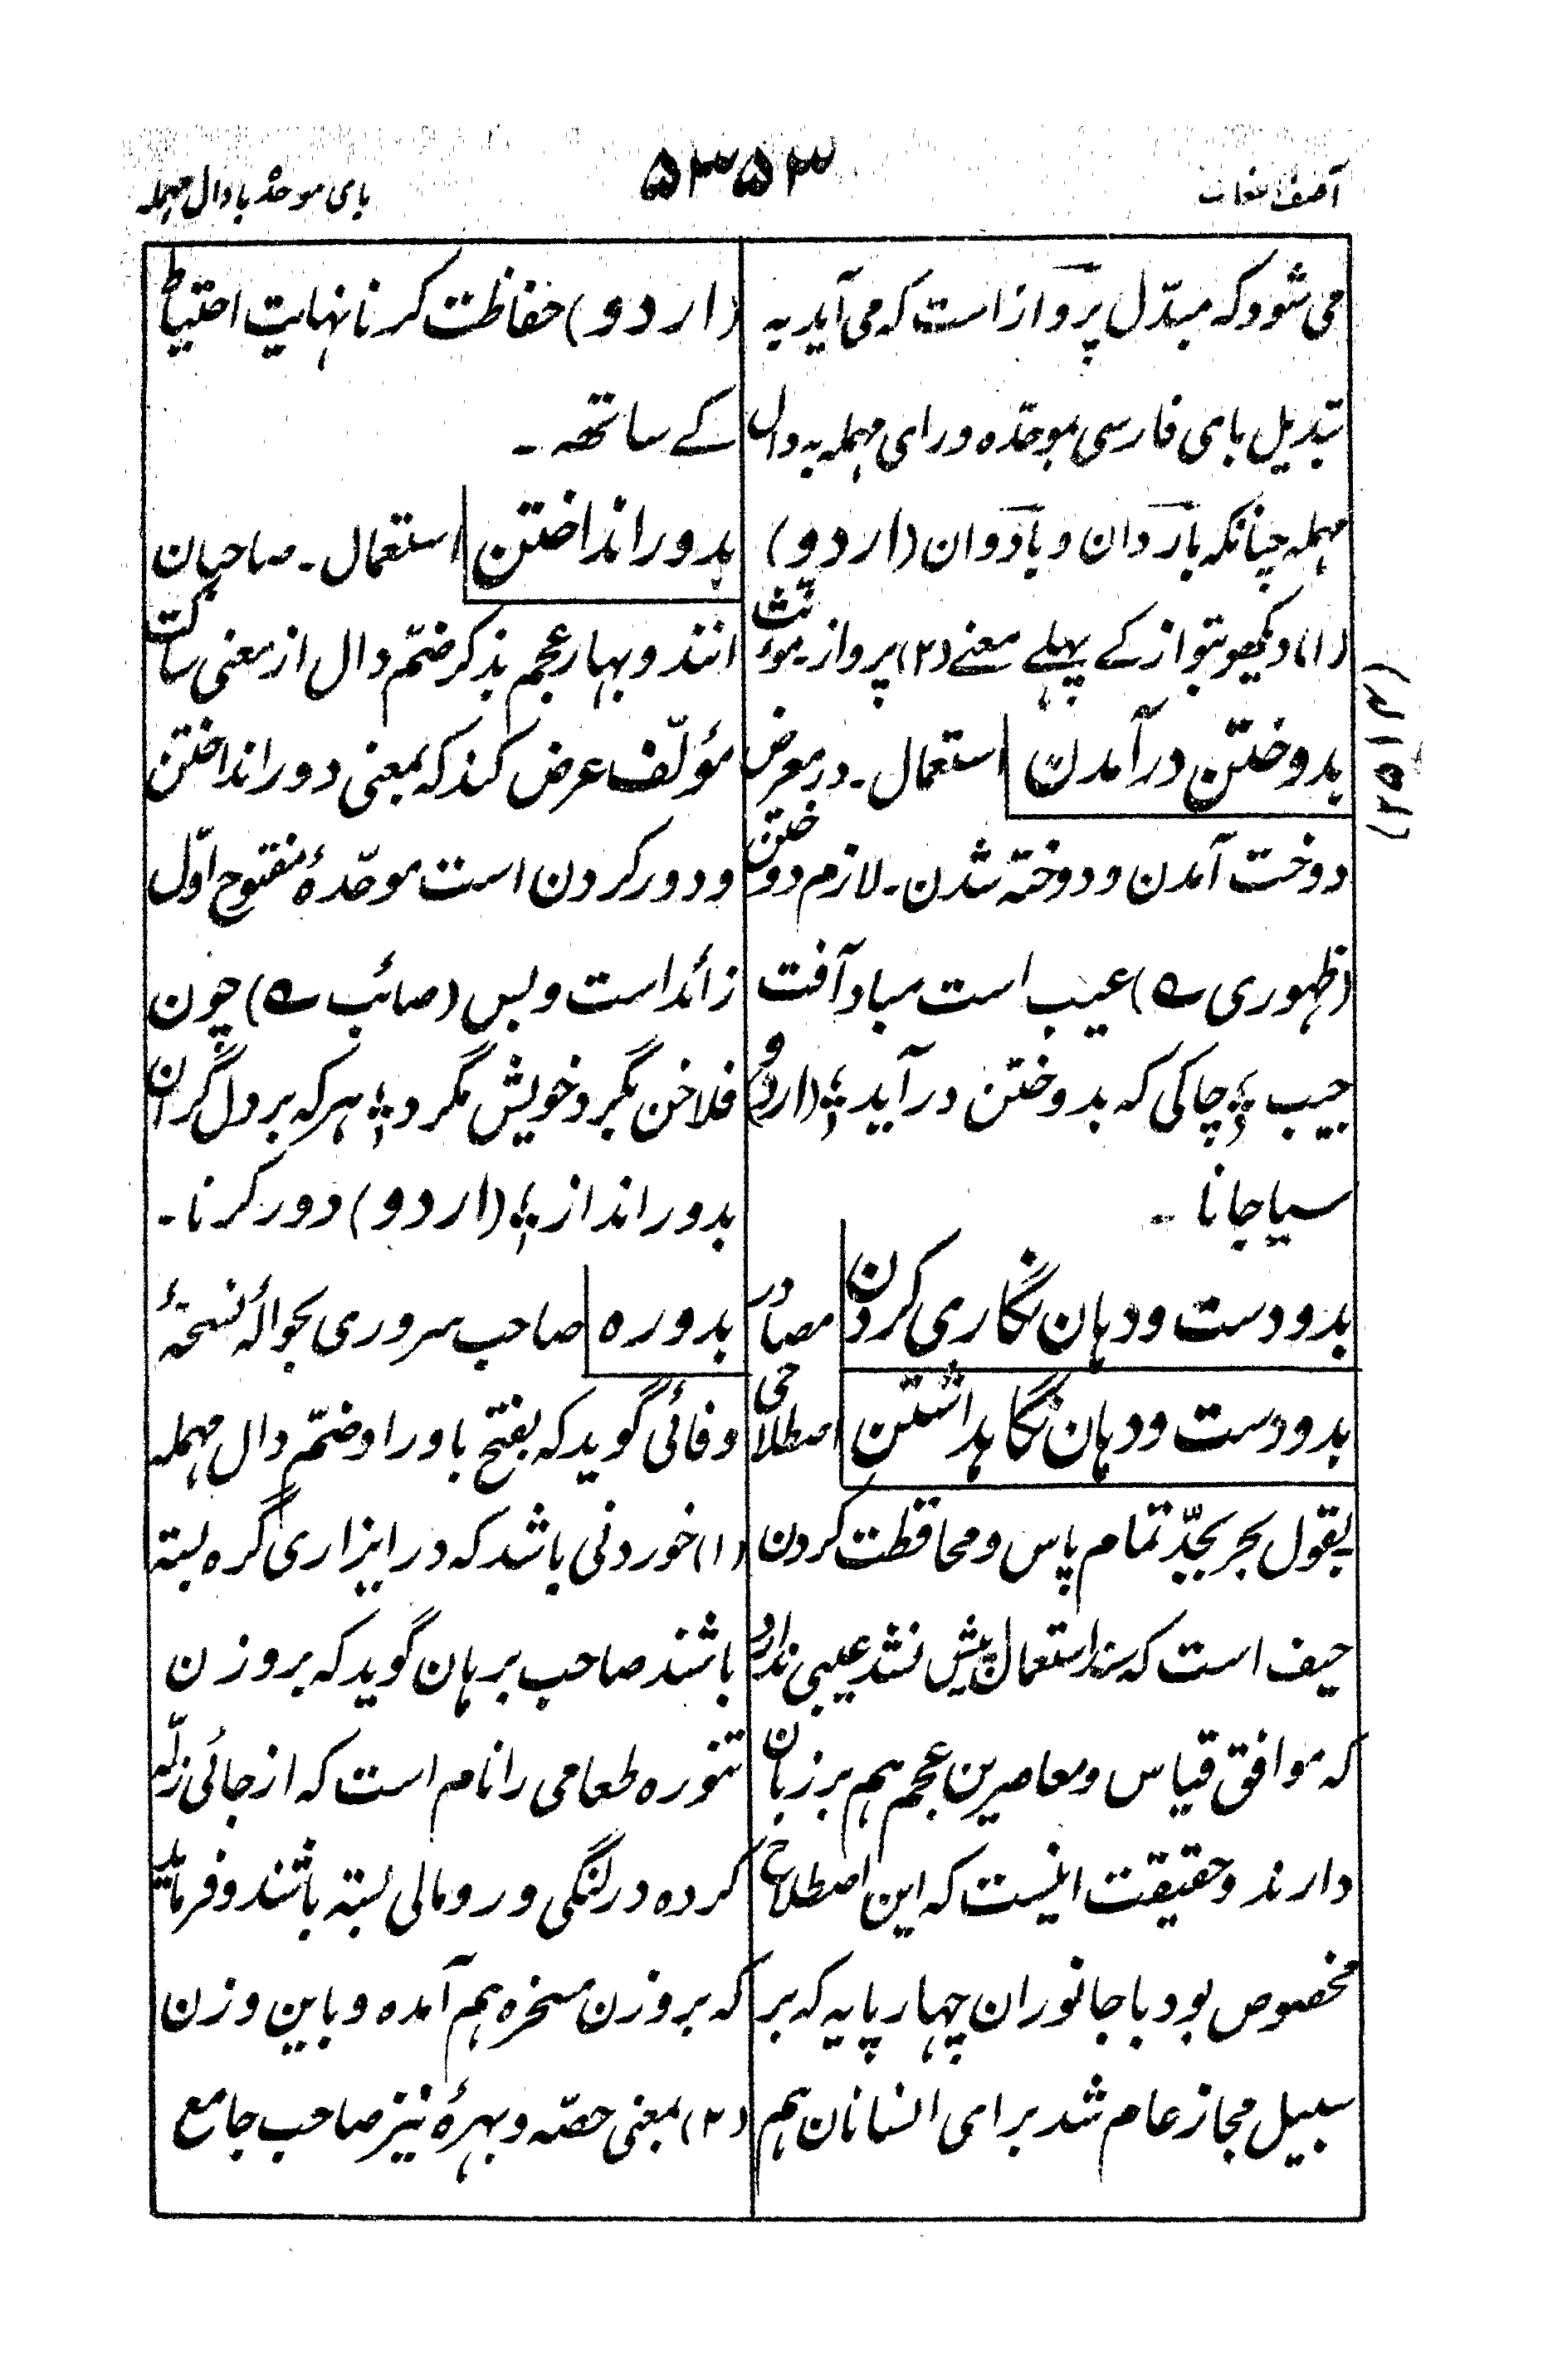 آصف اللغات
۵۳۵۳
بای موحدهٔ با دال مهمله
می شود که مبدّل پرواز است که می آید به
تبدیل بای فارسی بموحّده و رای مهمله به دال
مهمله چنانکه باردان و بادوان (اردو)
(۱) دیکھو بتواز کے پہلے معنے (۲) پرواز۔ مؤنث
بدوختن درآمدن استعمال۔ در معرض
دوخت آمدن و دوخته شدن۔ لازم دوختن
(ظهوری ے) عیب است مباد آفت
جیب ؛ چاکی که بدوختن درآید ؛ (اردو)
سیا جانا ۔
بدودست ودهان نگاری کردن مصادر
بدودست ودهان نگاهداشتن اصطلاحی
بقول بحر بجدّ تمام پاس و محافظت کردن
حیف است که سند استعمال پیش نشد عیبی ندارد
که موافق قیاس و معاصرین عجم هم بر زبان
دارند و حقیقت اینست که این اصطلاح
مخصوص بود با جانوران چهار پایه که بر
سبیل مجاز عام شد برای انسانان هم
(اردو) حفاظت کرنا نہایت احتیاط
کے ساتھ ۔
بدور انداختن استعمال۔ صاحبان
انند و بهار عجم بذکر ضمّ دال از معنی ساکت
مؤلّف عرض کند که بمعنی دور انداختن
و دور کردن است موحّدهٔ مفتوح اوّل
زائد است و بس (صائب ے) چون
فلاخن بگرد خویش مگرد ؛ هرکه بر دل گران
بدور انداز ؛ (اردو) دور کرنا ۔
بدوره صاحب سروری بحوالهٔ نسخهٔ
وفائی گوید که بفتح با و را و ضمّ دال مهمله
(۱) خوردنی باشد که در ایزاری گره بسته
باشند صاحب برهان گوید که بر وزن
تنوره طعامی را نام است که از جائی زلّه
کرده در لنگی و رومالی بسته باشند و فرماید
که بر وزن مسخره هم آمده و باین وزن
(۲) بمعنی حصّه و بهرهٔ نیز صاحب جامع
(۲۵۱۳)